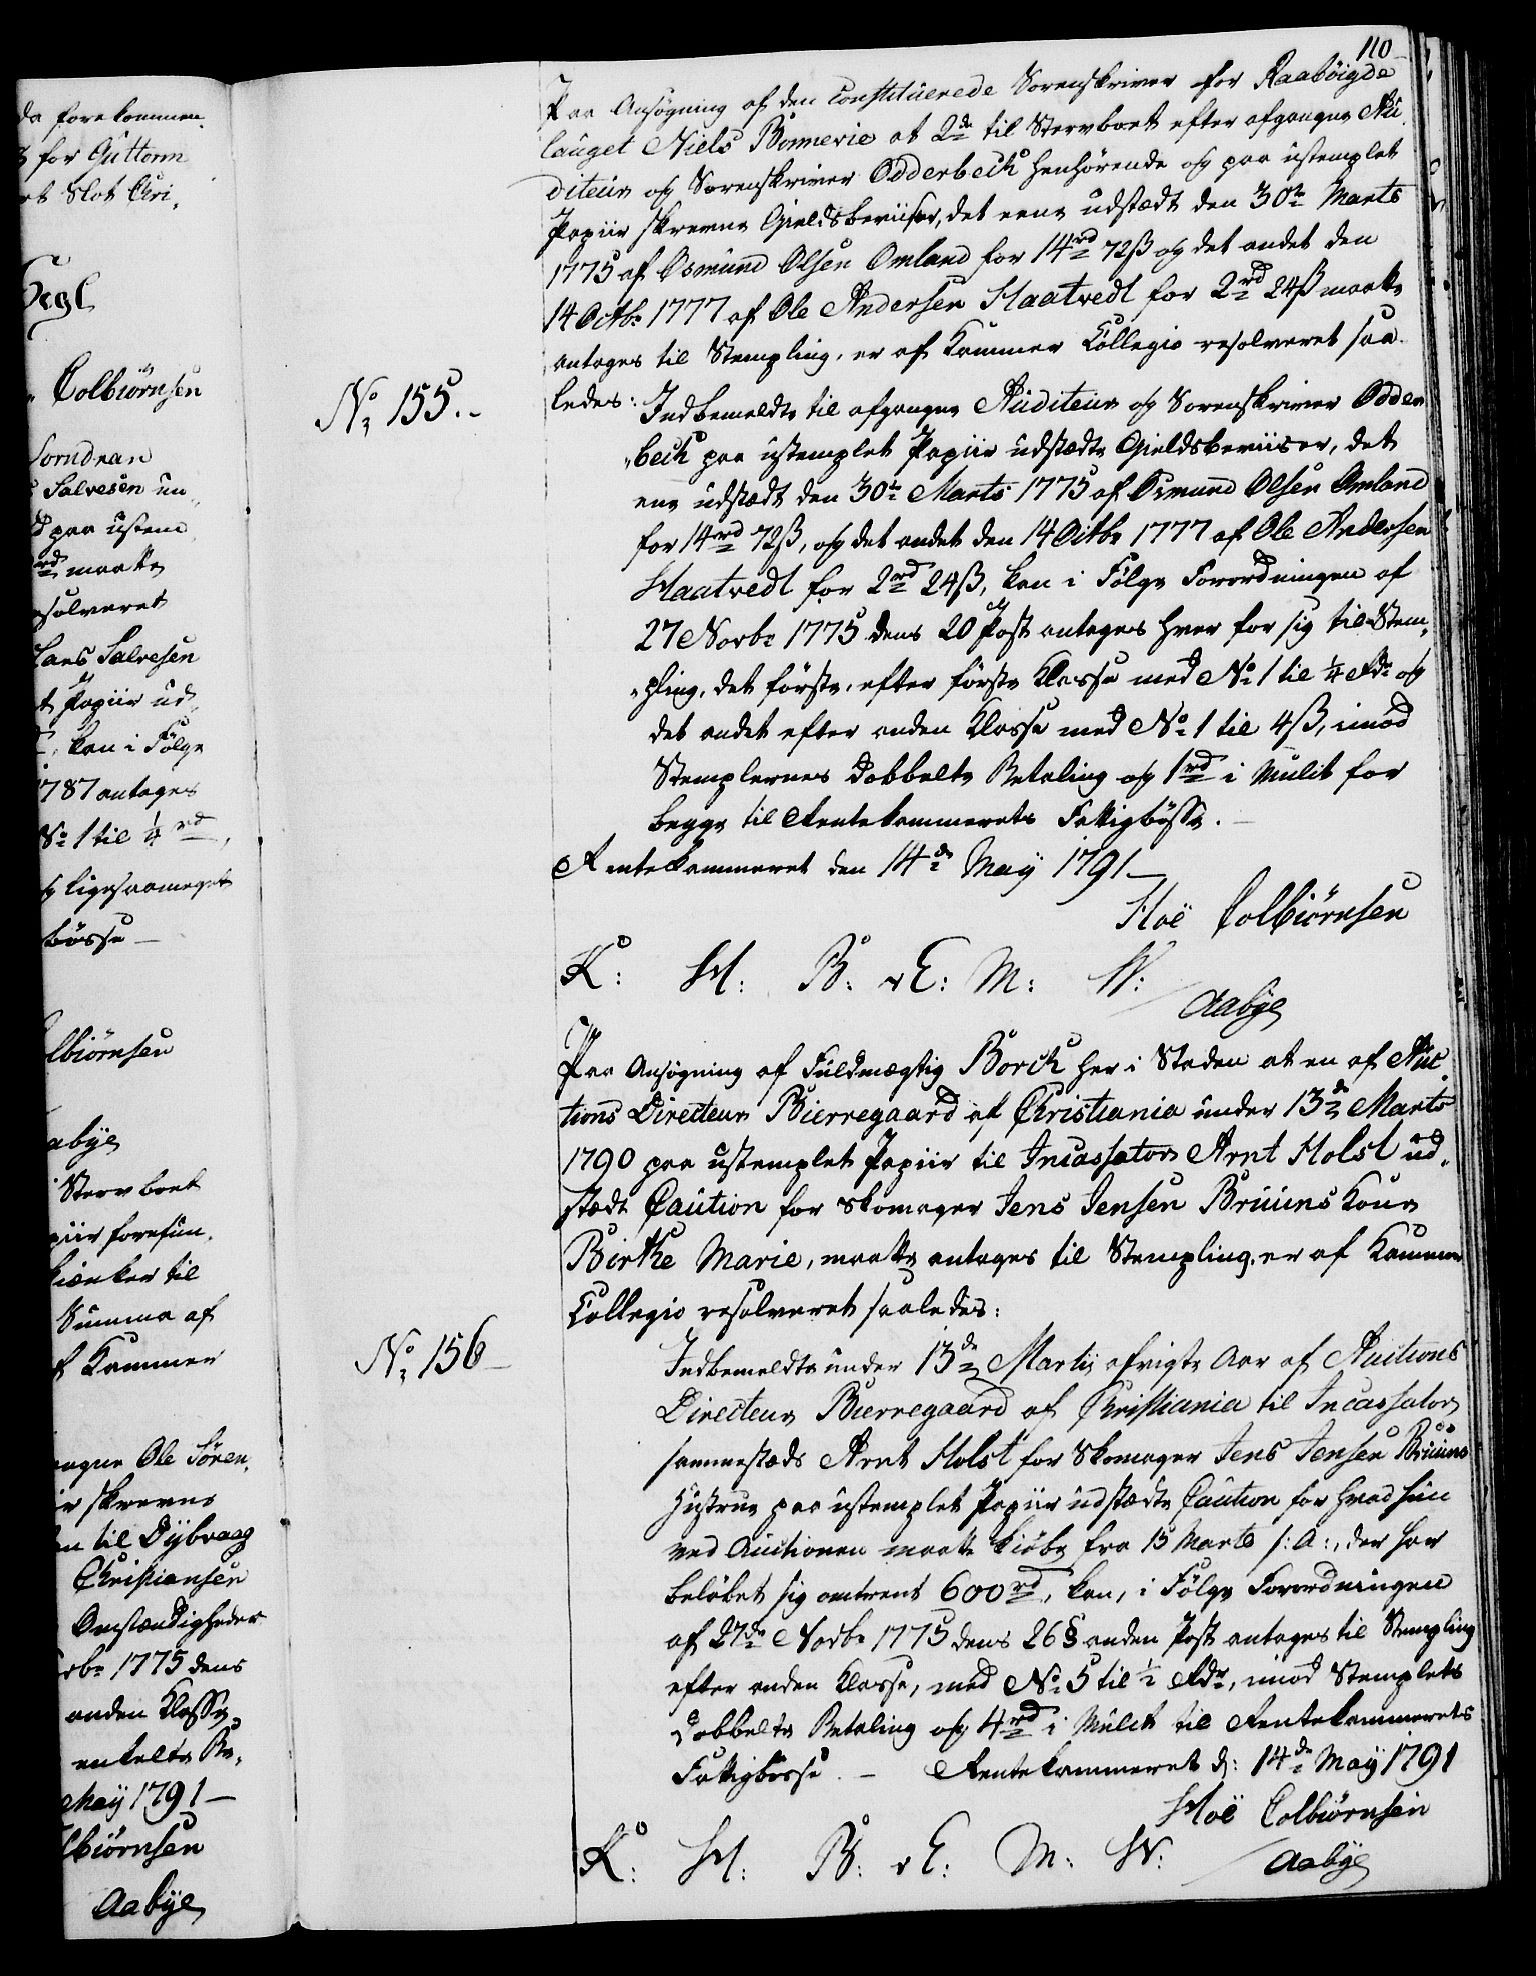 da forekommen,
for Guttorm
et Slot Chri,
Segl
Colbiörnsen
Sorndran
Salvesen un,,
paa ustem
rd maatte
solveret
Lars Salvesen
t Papiir ud,
kan i Følge
1787 antages
No 1 til ¼ rd
og ligesaameget
bösse —
lbiörnsen
abÿe
Stervboet
piir forefun,
tiænker til
Summa af
f Kammer
Ole Sören,
ir skrevne
en til Dÿbvaag
Christiansen
Omstændigheder
vbr 1775 dens
anden Klasse
enkelte Be,
Maÿ 1791 —
lbiörnsen
Aabÿe
110
Paa Ansøgning af den constituerede Sorenskriver for Raabÿigde
lauget Niels Bonnevie at 2de til Stervboet efter afgangne Au,
diteur og Sorenskriver Odderbech henhørende og paa ustemplet
Papiir skrevne Gieldsbeviiser, det eene udstædt den 30te Marts
1775 af Osmund Olsen Omland for 14rd 72ß og det andet den
14 Octbr 1777 af Ole Andersen Haatvedt for 2rd 24ß maatte
antages til Stempling, er af Kammer Collegio resolveret saa-
ledes:
No 155.-
Indbemeldte til afgangne Auditeur og Sorenskriver Odder
„bech paa ustemplet Papiir udstædte Gieldsbeviiser, det
ene udstædt den 30te Marts 1775 af Osmund Olsen Omland
for 14rd 72ß, og det andet den 14 Octbr 1777 af Ole Andersen
Haatvedt for 2rd 24ß, kan i Følge Forordningen af
27 Novbr 1775 dens 20 Post antages hver for sig til Stem,
„pling, det første, efter første Klasse med No 1 til ¼ Rdr og
det andet efter anden Klasse med No 1 til 4ß, imod
Stemplernes dobbelte Betaling og 1rd i Mulct for
begge til Rentekammerets Fattigbösse. —
Rentekammeret den 14de Maÿ 1791 —
Hoë Colbiörnsen
K: H: B: v E: M: W:
Aabÿe
Paa Ansøgning af Fuldmægtig Borch her i Staden at en af Auc,
tions Directeur Bierregaard af Christiania under 13de Marts
1790 paa ustemplet Papiir til Incassator Arnt Holst ud,,
stædt Caution for Skomager Jens Jensen Bruuns Kone
Birthe Marie, maatte antages til Stempling, er af Kammer
Collegio resolveret saaledes:
No 156 —
Indbemeldte under 13de Martii afvigte Aar af Auctions
Directeur Bierregaard af Christiania til Incassator
sammestæds Arnt Holst for Skomager Jens Jensen Bruuns
Hustrue paa ustemplet Papiir udstædte Caution for hvad hun
ved Auctionen maatte kiøbe fra 15 Marts s: A:, der har
beløbet sig omtrent 600rd, kan, i Følge Forordningen
af 27de Novbr 1775 dens 26§ anden Post antages til Stempling
efter anden Klasse, med No 5 til ½ Rdr, imod Stemplets
dobbelte Betaling og 4rd i Mulct til Rentekammerets
Fattigbösse. — Rentekammeret d: 14de Maÿ 1791
Hoë Colbiörnsen
K: H: B: v E: M: W:
Aabÿe